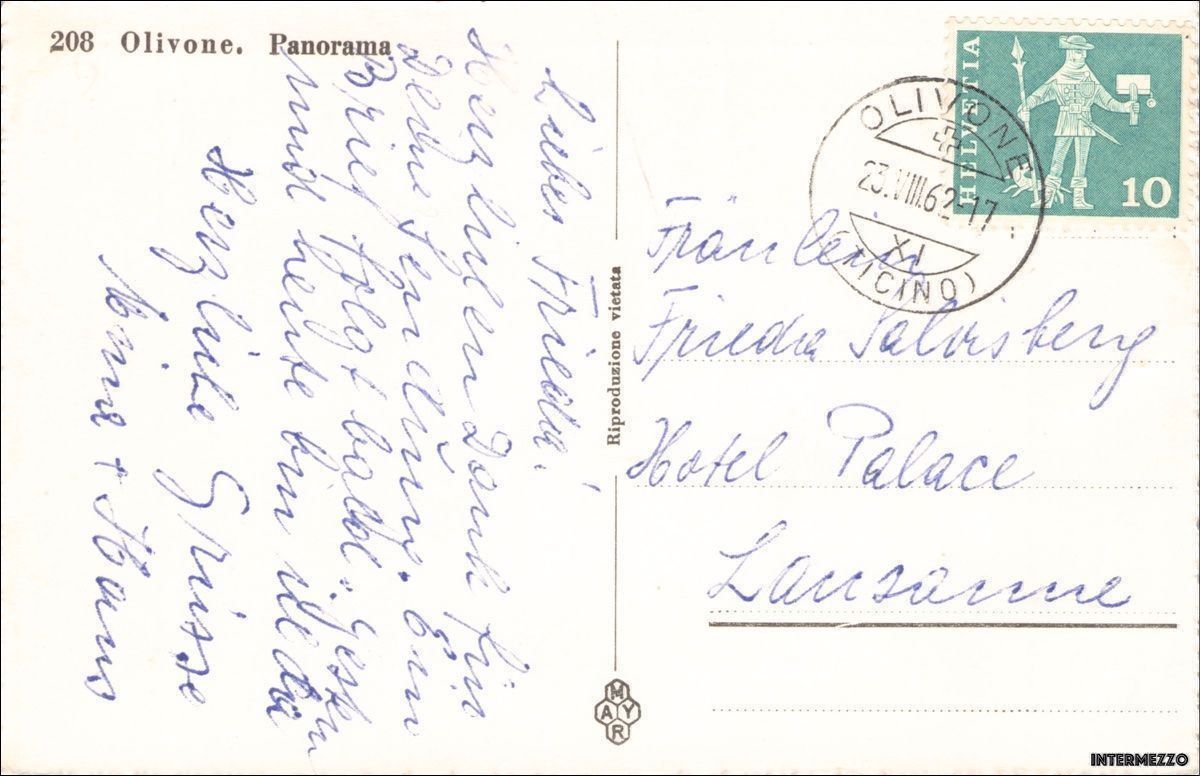 208 Olivone. Panorama
Liebe Frieda!
Herzlichen Dank für
Deine Zeilen. Ein
Brief folgt bald. Gestern
und heute bin
Herzliche Grüsse
+ Hans
Riproduzione vietata
MAYR
HELVETIA
10
OLIVONE
23.VIII.62-17
XI
(TICINO)
Fräulein
Frieda Salvisberg
Hotel Palace
Lausanne
INTERMEZZO